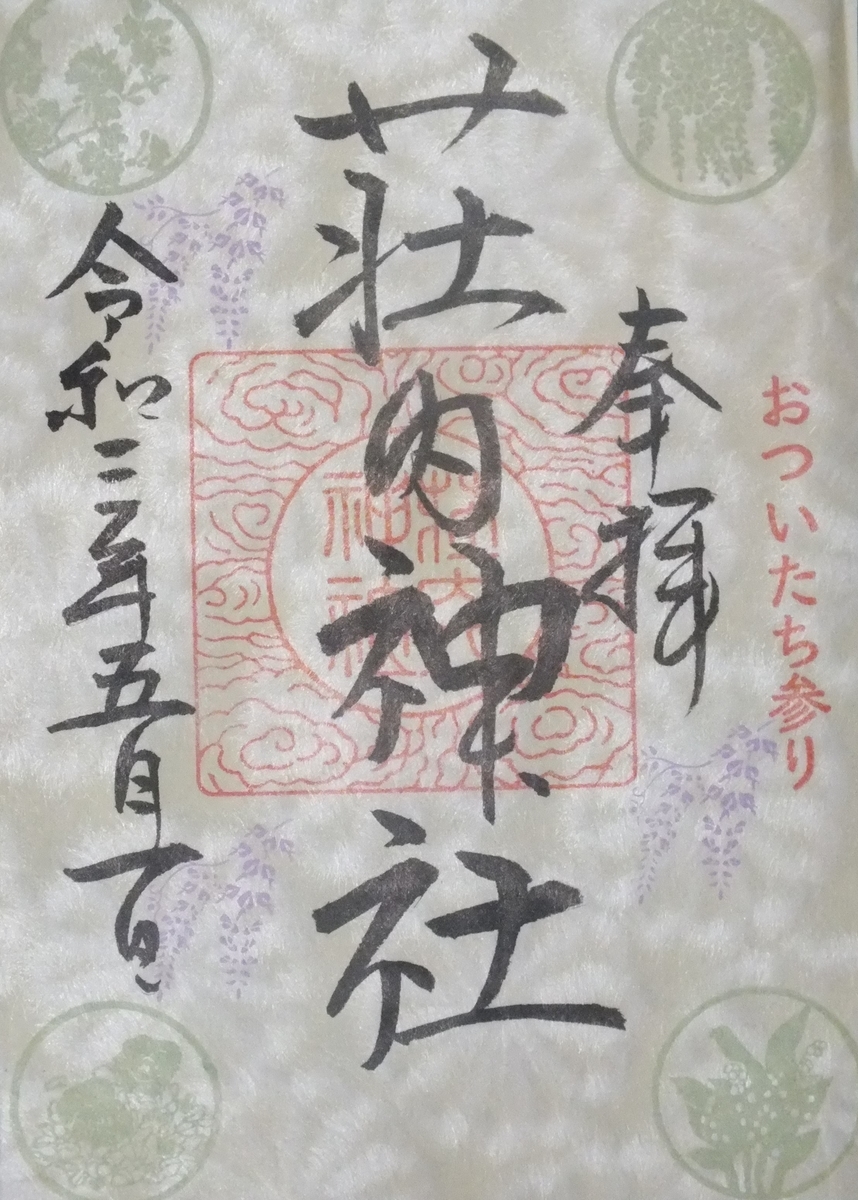 おついたち参り
奉拝
荘内神社
荘内
神社
令和三年五月一日